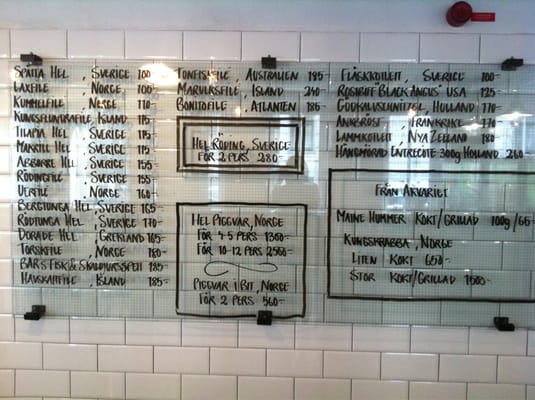 SPÄTTA HEL, SVERIGE 100
LAXFILE, NORGE 105
KUMMELFILE, NORGE 110
KUNGSFLUNDRAFILE, ISLAND 115
TILAPIA HEL, SVERIGE 115
MAKRILL HEL, SVERIGE 115
ABBORRE HEL, SVERIGE 155
RÖDINGFILE, SVERIGE 155
UERFILE, NORGE 160
BERGTUNGA HEL, SVERIGE 165
RÖDTUNGA HEL, SVERIGE 170
DORADE HEL, GREKLAND 165
TORSKFILE, NORGE 180
BAR'S FISK & SKALDJURSSPETT 185
HAVSKATFILE, ISLAND 185
TONFISKFILE, AUSTRALIEN 185
MARULKSFILE, ISLAND 240
BONITOFILE, ATLANTEN 185
HEL RÖDING, SVERIGE
FÖR 2 PERS 280:-
HEL PIGGVAR, NORGE
FÖR 4-5 PERS 1300:-
FÖR 10-12 PERS 2500:-
PIGGVAR I BIT, NORGE
FÖR 2 PERS 560:-
FLÄSKKOTLETT, SVERIGE 100:-
ROSTBIFF "BLACK ANGUS" USA 125
GÖDKALVSCHNITZEL, HOLLAND 170:-
ANKBRÖST, FRANKRIKE 170
LAMMKOTLETT, NYA ZELLAND 180
HÄNGMÖRAD ENTRECOTE 300g HOLLAND 260
FRÅN AKVARIET
MAINE HUMMER KOKT/GRILLAD 100g/65:-
KUNGSKRABBA, NORGE
LITEN KOKT 650:-
STOR KOKT/GRILLAD 1500:-